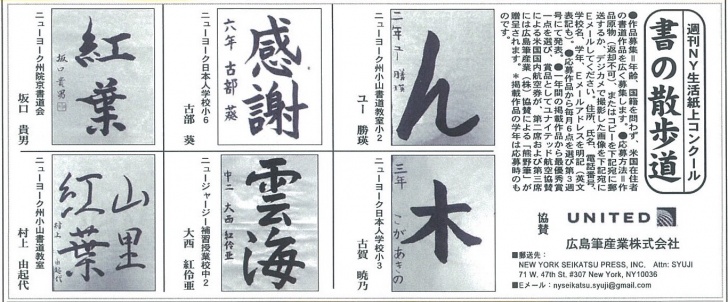 週刊NY生活紙上コンクール
書の散歩道
●作品募集=年齢、国籍を問わず、米国在住者
の書道作品を広く募集します。●応募方法=作
品原物(返却不可)、またはコピーを下記宛に郵
送するか、デジカメで撮影した画像を下記宛に
Eメールしてください。住所、氏名、電話番号、
学校名、学年、Eメールアドレスを明記(英文
表記も)。●応募作品から毎月6点を選び第3週
号にて発表。●一年間の掲載作品から最優秀賞
一点を選び、賞品としてユナイテッド航空協賛
による米国国内航空券が、第二席および第三席
には広島筆産業(株)協賛による「熊野筆」が
贈呈されます。*掲載作品の学年は応募時のも
のです。
協賛
UNITED
広島筆産業株式会社
■郵送先:
NEW YORK SEIKATSU PRESS, INC. Attn: SYUJI
71 W. 47th St. #307 New York, NY10036
■Eメール:nyseikatsu.syuji@gmail.com
ん
二年 ユー 勝瑛
ニューヨーク州小山書道教室小2
ユー 勝瑛
感謝
六年 古部 葵
ニューヨーク日本人学校小6
古部 葵
紅葉
坂口貴男
ニューヨーク州院京書道会
坂口 貴男
木
三年 こがあきの
ニューヨーク日本人学校小3
古賀 暁乃
雲海
中二 大西 紅伶亜
ニュージャージー補習授業校中2
大西 紅伶亜
山里
紅葉
村上 由起代
ニューヨーク州小山書道教室
村上 由起代